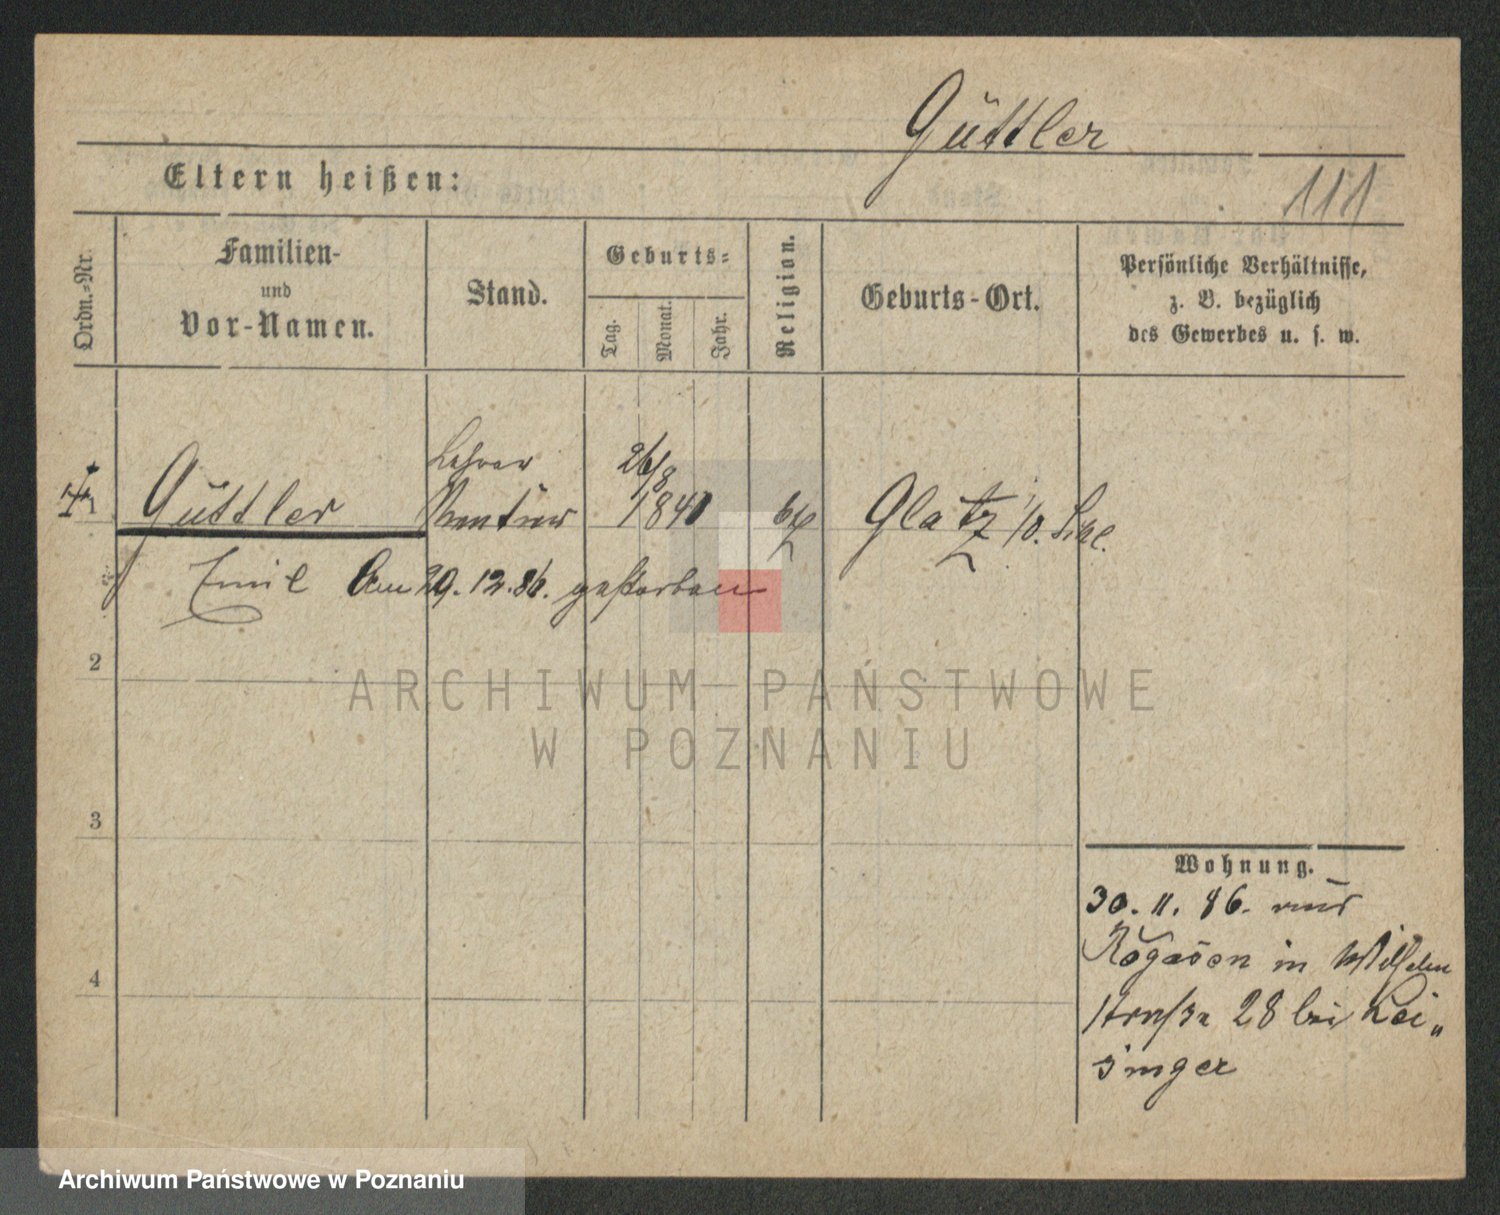 Güttler
Eltern heißen:
111
Ordn.-Nr.
Familien-
und
Vor-Namen.
Stand.
Geburts-
Tag.
Monat.
Jahr.
Religion.
Geburts-Ort.
Persönliche Verhältnisse,
z. B. bezüglich
des Gewerbes u. s. w.
1
Güttler
Lehrer
Rentier
26/8
1840
Glatz /O. Schl.
Emil Am 29.12.86. gestorben
2
ARCHIWUM PAŃSTWOWE
W POZNANIU
3
4
Wohnung.
30. 11. 86. aus
Rogasen in Wilhelm
straße 28 bei Lei„
singer
Archiwum Państwowe w Poznaniu